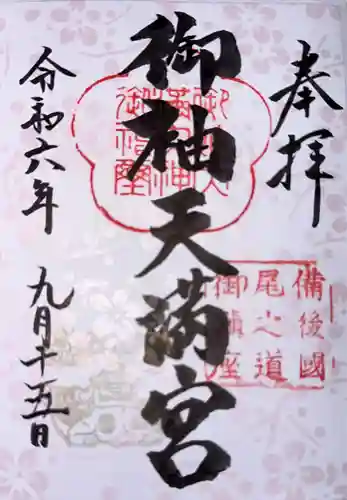 奉拝
御袖天満宮
令和六年
九月十五日
備後國
尾之道
御鎮座